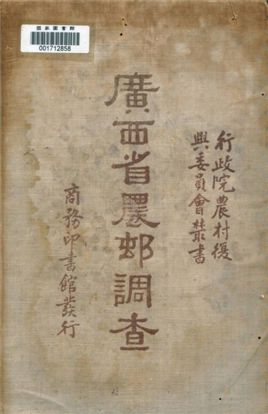 國家圖書館
001712858
行政院農村復
興委員會叢書
廣西省農邨調查
商務印書館發行